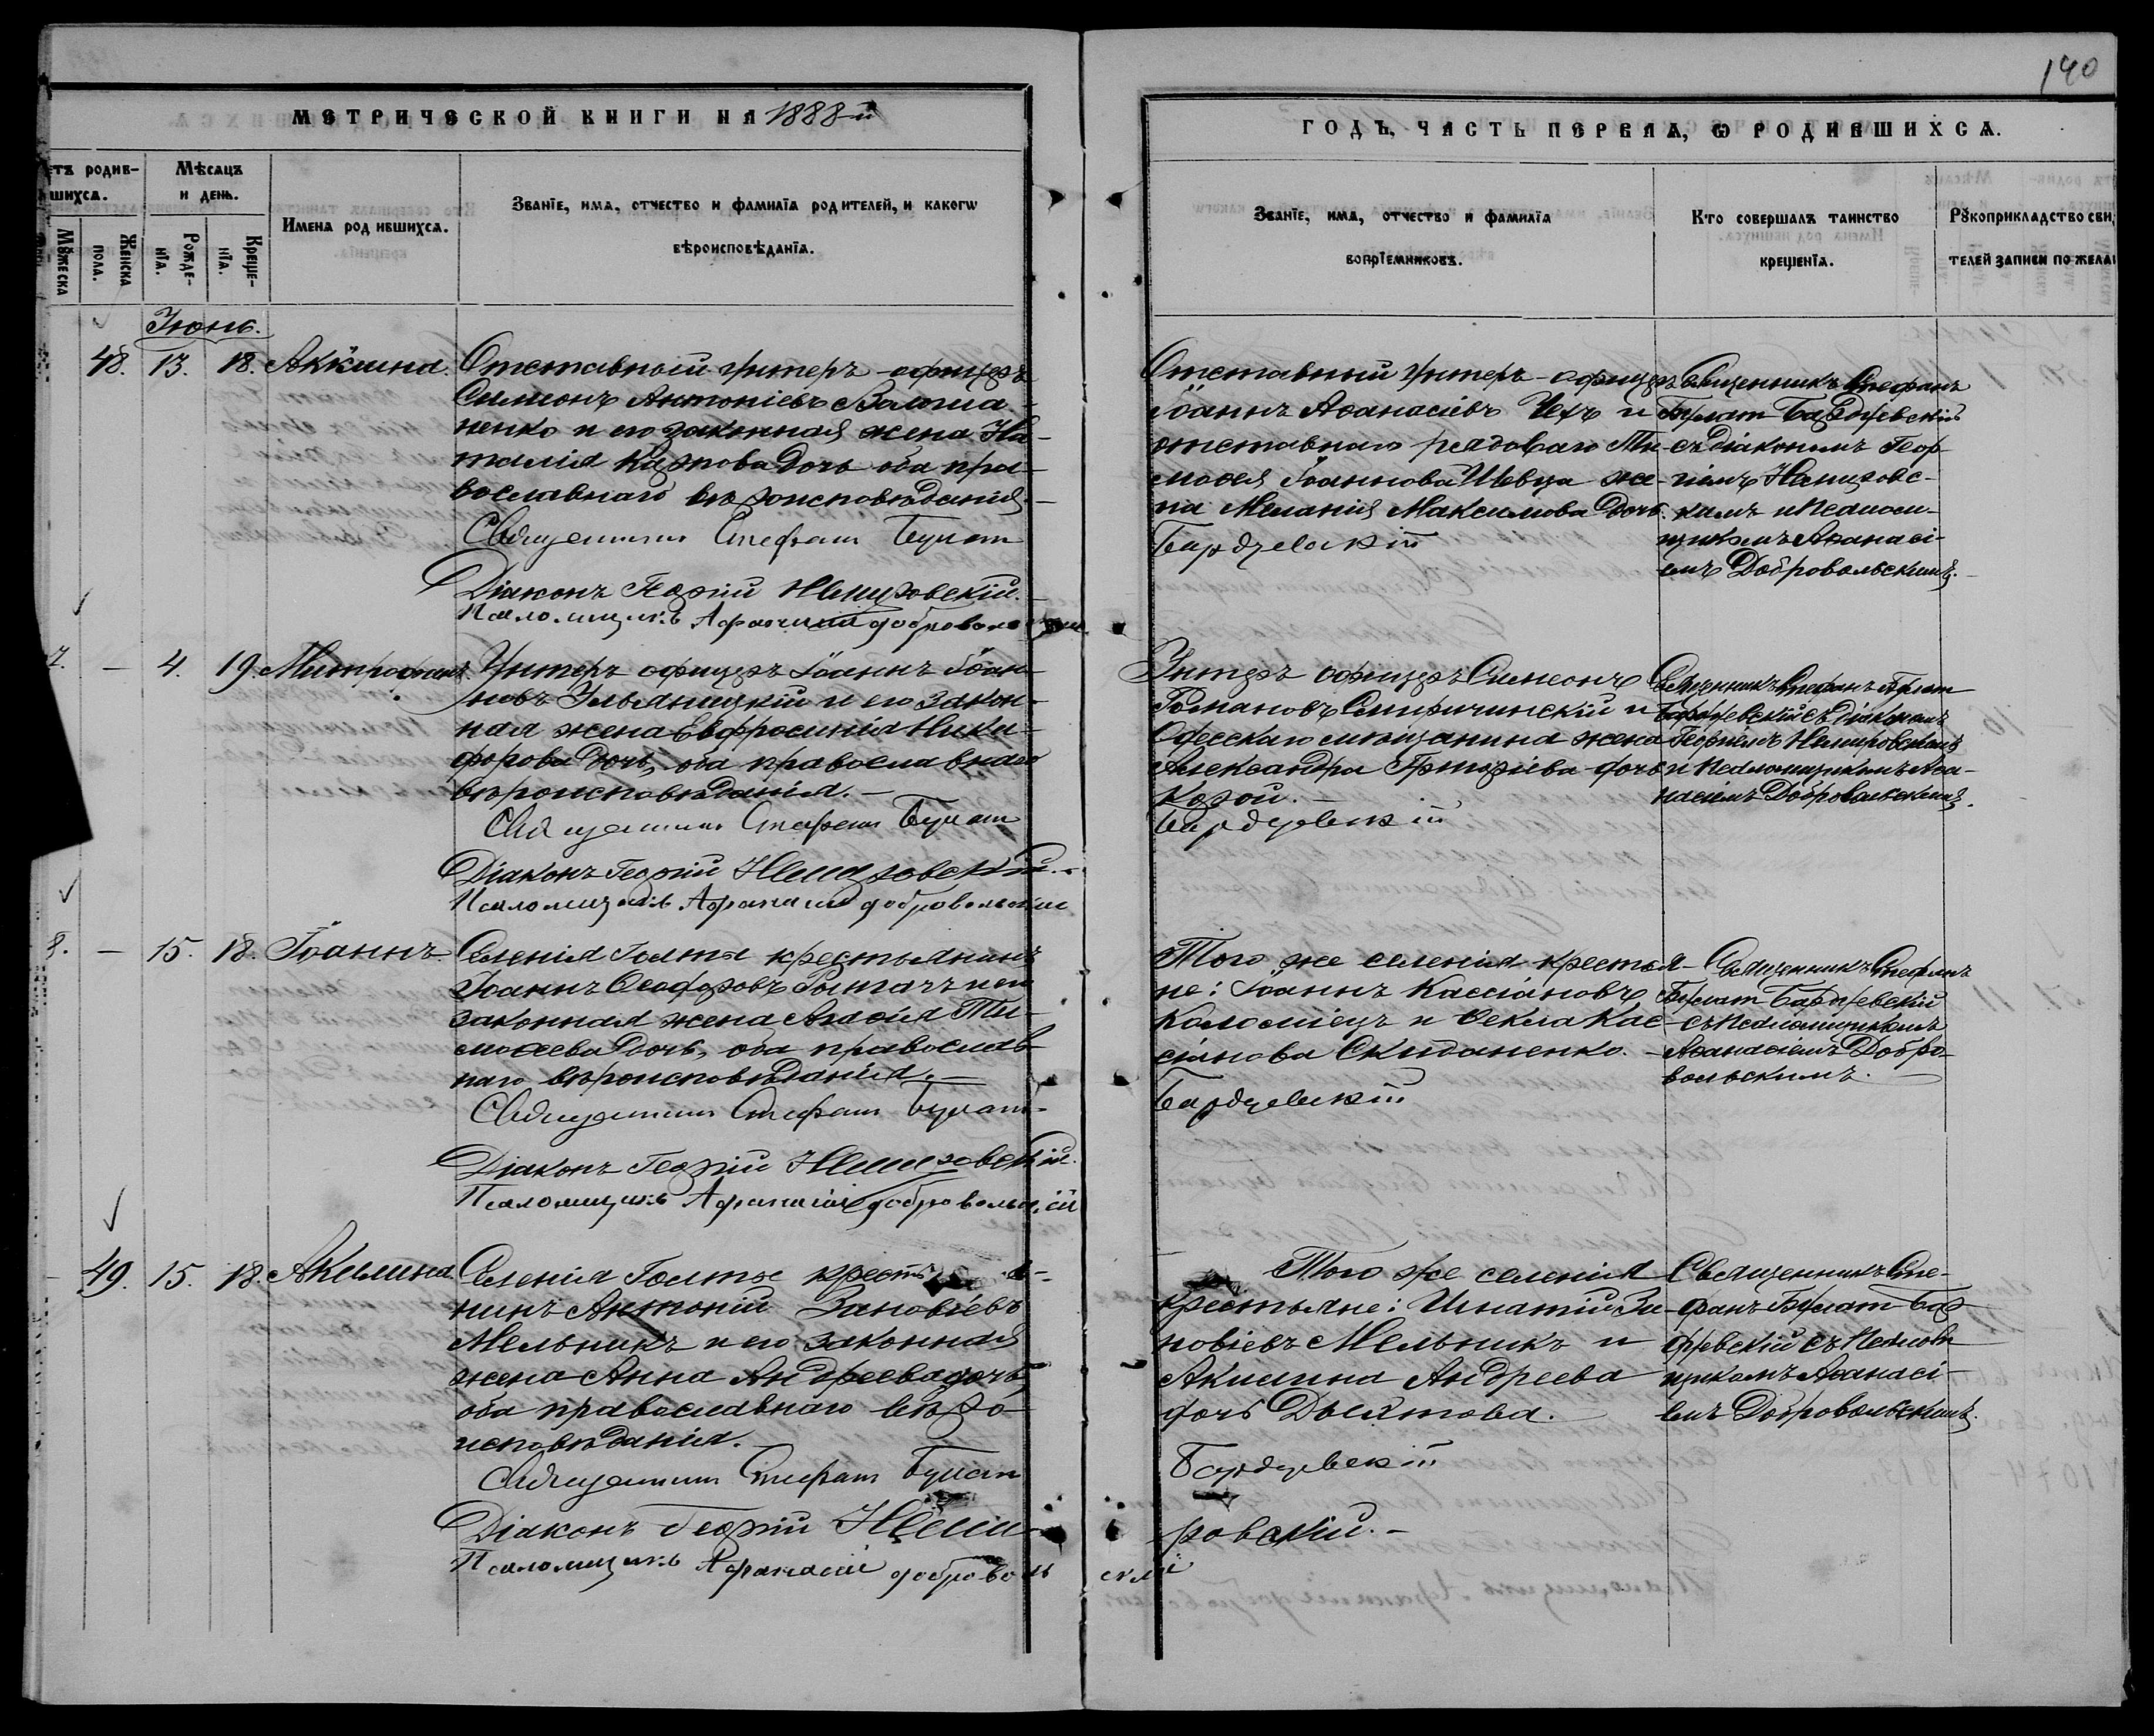 140
МЕТРИЧЕСКОЙ КНИГИ НА 1888-й
ГОДЪ, ЧАСТЬ ПЕРВАЯ, Ѡ РОДИВШИХСЯ.
етъ родив-
шихся.
Мѣсяцъ
и день.
Мꙋжеска
Женска
пола.
Рожде-
нїя.
Креще-
нїя.
Имена родившихся.
Званїе, имя, отчество и фамилїя родителей, и какогѡ
вѣроисповѣданїя.
Званїе, имя, отчество и фамилїя
воспрїемниковъ.
Кто совершалъ таинство
крещенїя.
Рꙋкоприкладство сви
телей записи по жела
Іюнь.
48. 13. 18. Акилина.
Отставный Унтеръ-офицеръ
Симеонъ Антоніевъ
ненко и его законная жена На-
талія Карпова дочь оба пра-
вославнаго вѣроисповѣданія.
Священникъ Стефанъ Булат
Діаконъ Георгій Немировскій.
Псаломщикъ Афанасій Добровольскій
Отставный Унтеръ-офицеръ
Іоаннъ Аѳанасіевъ Чехъ и
отставнаго рядоваго Ти-
моѳея Іоаннова Шевца же-
на Меланія Максимова дочь.
Бардзевскій
Священникъ Стефанъ
Булат Бардзевскій
съ Діакономъ Геор-
гіемъ Немировс-
кимъ и Псалом-
щикомъ Аѳанасі-
емъ Добровольскимъ.
7. — 4. 19. Митрофанъ.
Унтеръ офицеръ Іоаннъ Іоан-
новъ Ульяницкій и его закон-
ная жена Евфросинія Ники-
форова дочь, оба православнаго
вѣроисповѣданія.—
Священникъ Стефанъ Булат
Діаконъ Георгій Немировскій.
Псаломщикъ Афанасій Добровольскій
Унтеръ офицеръ Симеонъ
Романовъ и
Одесскаго мющанина жена
Александра Григоріева дочь
Бардзевскій
Священникъ Стефанъ Булат
Бардзевскій съ Діакономъ
Георгіемъ Немировскимъ
и Псаломщикомъ Аѳа-
насіемъ Добровольскимъ.
8. — 15. 18. Іоаннъ.
Селенія Голты крестьянинъ
Іоаннъ Ѳеодоровъ и его
законная жена Агаѳія Ти-
моѳеева дочь, оба православ-
наго вѣроисповѣданія.—
Священникъ Стефанъ Булат
Діаконъ Георгій Немировскій.
Псаломщикъ Афанасій Добровольскій
Того же селенія крестья-
не: Іоаннъ Кассіановъ
Коломіецъ и Ѳекла Кас-
сіанова Скиданенко.—
Бардзевскій
Священникъ Стефанъ
Булат Бардзевскій
съ Псаломщикомъ
Аѳанасіемъ Добро-
вольскимъ.
49. 15. 18. Акилина.
Селенія Голты крестья-
нинъ Антоній Зановіевъ
Мельникъ и его законная
жена Анна Андреева дочь,
оба православнаго вѣро-
исповѣданія.
Священникъ Стефанъ Булат
Діаконъ Георгій Неми-
ровскій.—
Псаломщикъ Афанасій Добровольскій
Того же селенія
крестьяне: Игнатій За-
новіевъ Мельникъ и
Акилина Андреева
дочь
Бардзевскій
Священникъ Сте-
фанъ Булат Бар-
дзевскій съ Псалом-
щикомъ Аѳанасі-
емъ Добровольскимъ.